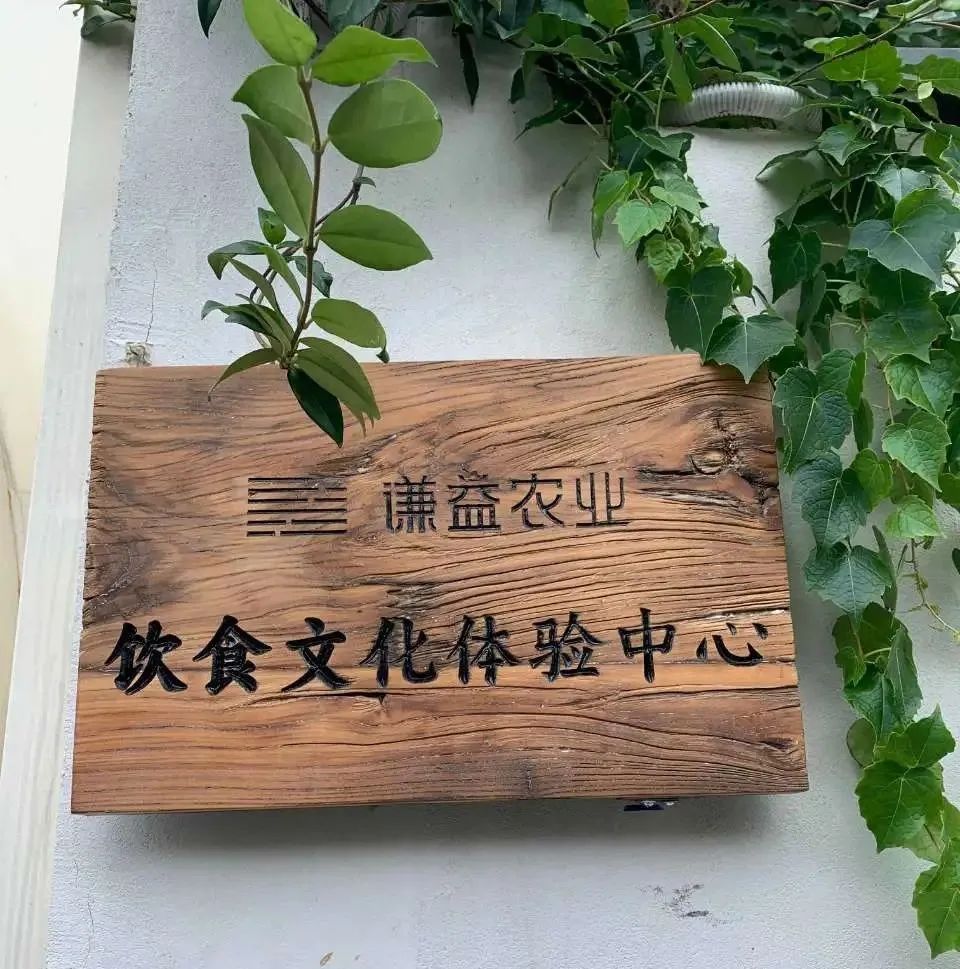 谦益农业
饮食文化体验中心